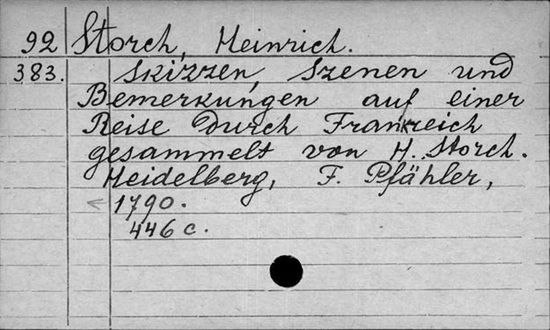 92 Storch, Heinrich.
383. Skizzen, Szenen und
Bemerkungen auf einer
Reise durch Frankreich
gesammelt von H. Storch.
Heidelberg, F. Pfähler,
1790.
446 c.